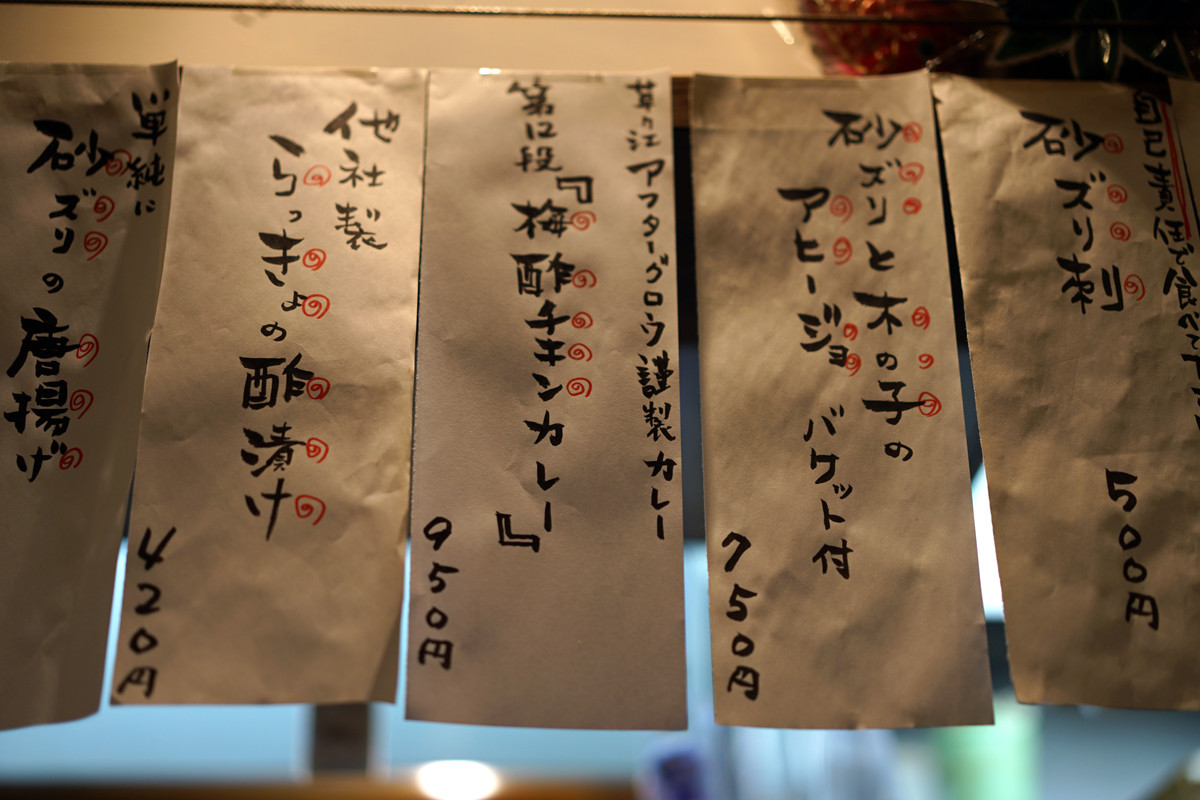 自己責任で食べて下
砂ズリ刺
500円
砂ズリと木の子の
アヒージョ
バケット付
750円
草々江アフターグロウ謹製カレー
第12段
『梅酢チキンカレー』
950円
他社製
らっきょの酢漬け
420円
単純に
砂ズリの唐揚げ